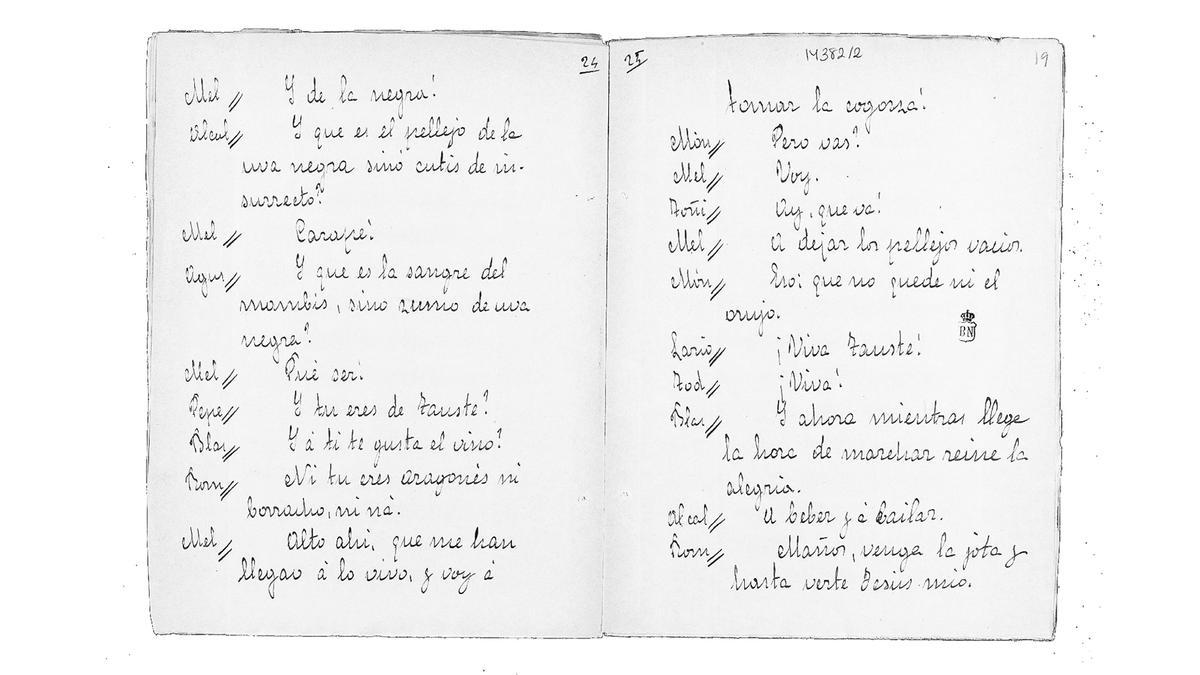 24
Mel // Y de la negra!
Alcal // Y que es el pellejo de la
uva negra sinó cutis de in-
surrecto?
Mel // Carape!
Agus // Y que es la sangre del
mambis, sino zumo de uva
negra?
Mel // Pué ser!
Pepe // Y tu eres de Tauste?
Blas // Y á ti te gusta el vino?
Rom // Ni tu eres aragonés ni
borracho, ni ná.
Mel // Alto ahi, que me han
llegao á lo vivo, y voy á
25
14382/2
19
tomar la cogorza!
Món // Pero vas?
Mel // Voy.
Toñi // Ay, que va!
Mel // A dejar los pellejos vacios.
Món // Eso; que no quede ni el
orujo.
BN
Lario // ¡Viva Tauste!
Tod // ¡Viva!
Blas // Y ahora mientras llege
la hora de marchar reine la
alegria.
Alcal // A beber y á bailar.
Rom // Maños, venga la jota y
hasta verte Jesús mio.